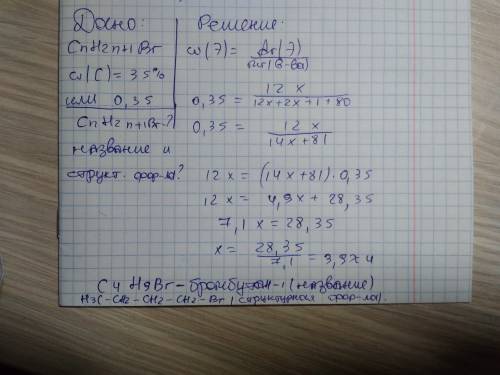 Дано:
CnH2n+1Br
ω(C) = 35%
или 0,35
CnH2n+1Br-?
название и
структ. фор-ла?
Решение:
ω(Э) = Ar(Э) / Mr(В-ва)
0,35 = 12x / 12x+2x+1+80
0,35 = 12x / 14x+81
12x = (14x+81)·0,35
12x = 4,9x + 28,35
7,1x = 28,35
x = 28,35 / 7,1 = 3,9≈4
C4H9Br - бромбутан-1 (название)
H3C-CH2-CH2-CH2-Br (структурная фор-ла).